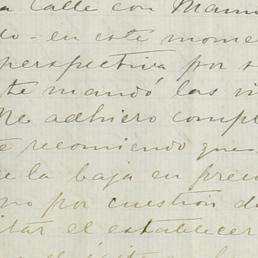 a calle con Manu
do - en este mome
perspectiva por s
te mandó las vi
Me adhiero compl
e recomiendo que
e la baja en preci
no por cuestión d
itar el establecer